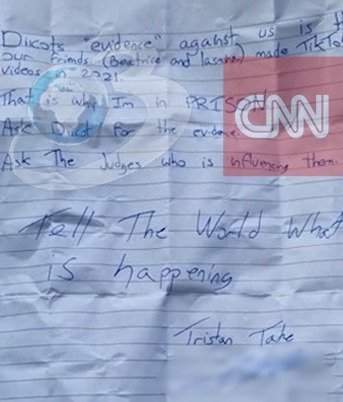 Diicots "evidence" against us is
our friends (Beatrice and Iasmina) made TikTo
videos in 2021.
That is why Im in PRISON
CNN
Ask Diicot for the evidence
Ask The Judges who is influencing them.
Tell The World What
is happening
Tristan Tate